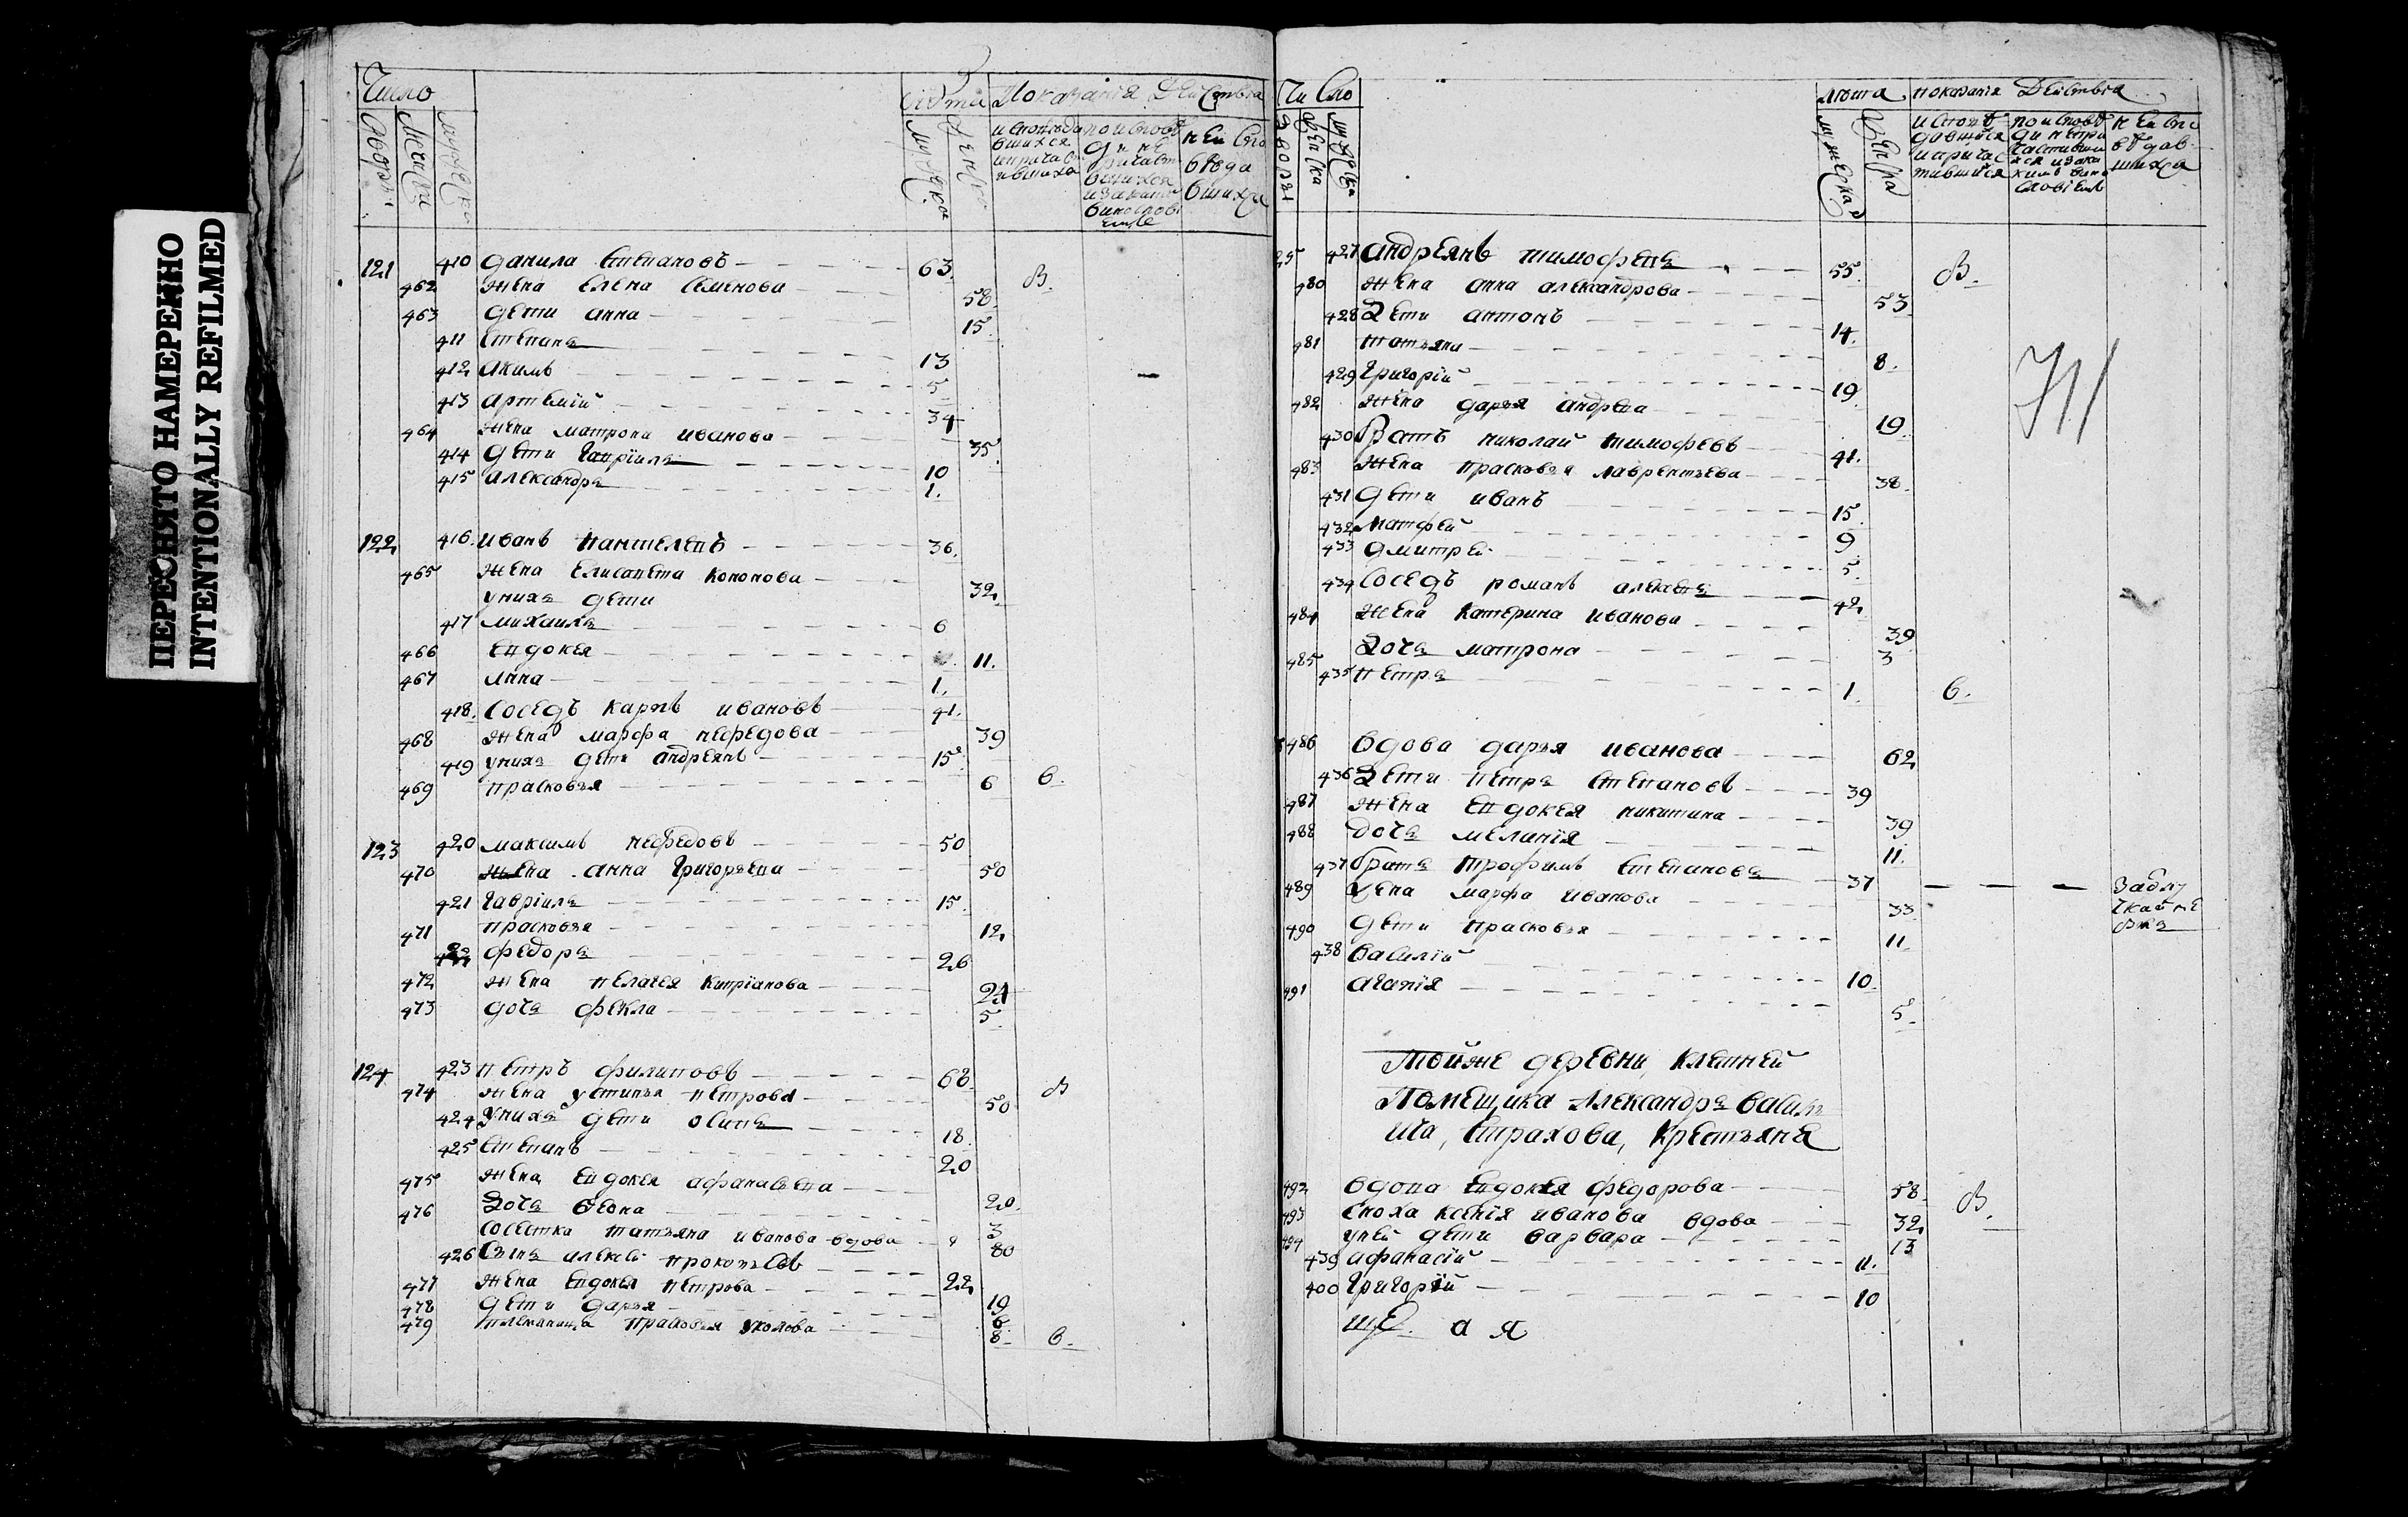 ПЕРЕСНЯТО НАМЕРЕННО
INTENTIONALLY REFILMED
Число
лѣта Показанія Дѣйства
121 410 данила степановъ 63. В.
462 жена Елена семенова 58.
463 дети анна 15
411 степанъ 13
412 Акимъ 5
413 артемій 34
464 жена матрона иванова 35.
414 дети Гаврiилъ 10
415 александръ 1.
122 416. иванъ пантелевъ 36.
465 жена Елисавета кононова 32
унихъ дети
417 михаила 6
466 Евдокея 11.
467 Анна 1.
418. Соседъ Карпъ ивановъ 41.
468 жена марфа нефедова 39
419 унихъ дети андреянъ 15
469 прасковья 6 в.
123 420 максимъ нефедовъ 50
470 жена анна Григорьева 50
421 Гаврiилъ 15
471 прасковья 12
422 федоръ 26
472 жена пелагея Кипрiанова 24
473 дочь фекла 5.
124 423 петръ филиповъ 68 В
474 жена устинья петрова 50
424 унихъ дети осипъ 18.
425 степанъ 20
475 жена Евдокея афанасьева 20.
476 дочь 3
соседка татьяна иванова вдова 80
426 Сынъ алексей прокопьевъ 22
477 жена Евдокея петрова 19
478 дети дарья 6
479 племяница прасковья 8. в.
Число
лѣта показанія Действія
25 427 андреянъ тимофеевъ 55. В.
480 жена анна александрова 53
428 дети антонъ 14.
481 татьяна 8.
429 Григорій 19
482 жена дарья андреева 19.
430 братъ николай тимофеевъ 41.
483 жена прасковья лаврентьева 38.
431 дети иванъ 15
432 матфей 9
433 дмитрей 5.
434 соседъ романъ алексеевъ 42
484 жена катерина иванова 39
485 дочь матрона 3
435 петръ 1. в.
486 вдова дарья иванова 62
436 дети петръ степановъ 39
487 жена Евдокея никитина 39
488 дочь меланiя 11.
437 братъ трофимъ степановъ 37
489 жена марфа иванова 33
490 дети прасковья 11
438 василій 10.
491 агапiя 5.
Тойже деревни Клетней
Помещика Александра Васильича, Страхова, Крестьяне
492 вдова Евдокея федорова 58. В.
493 сноха ксенiя иванова вдова 32
494 у ней дети варвара 13
439 афанасій 11.
400 Григорій 10